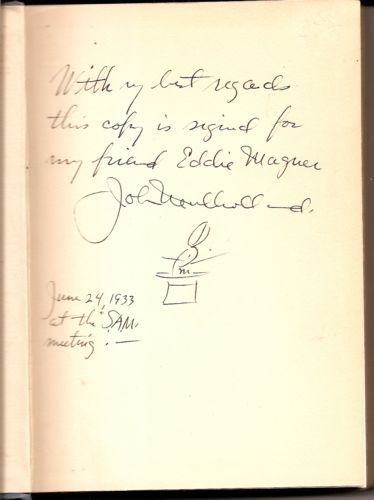 With my best regards
this copy is signed for
my friend Eddie Magner
John Mulholland.
June 24, 1933
at the S.A.M.
meeting. —